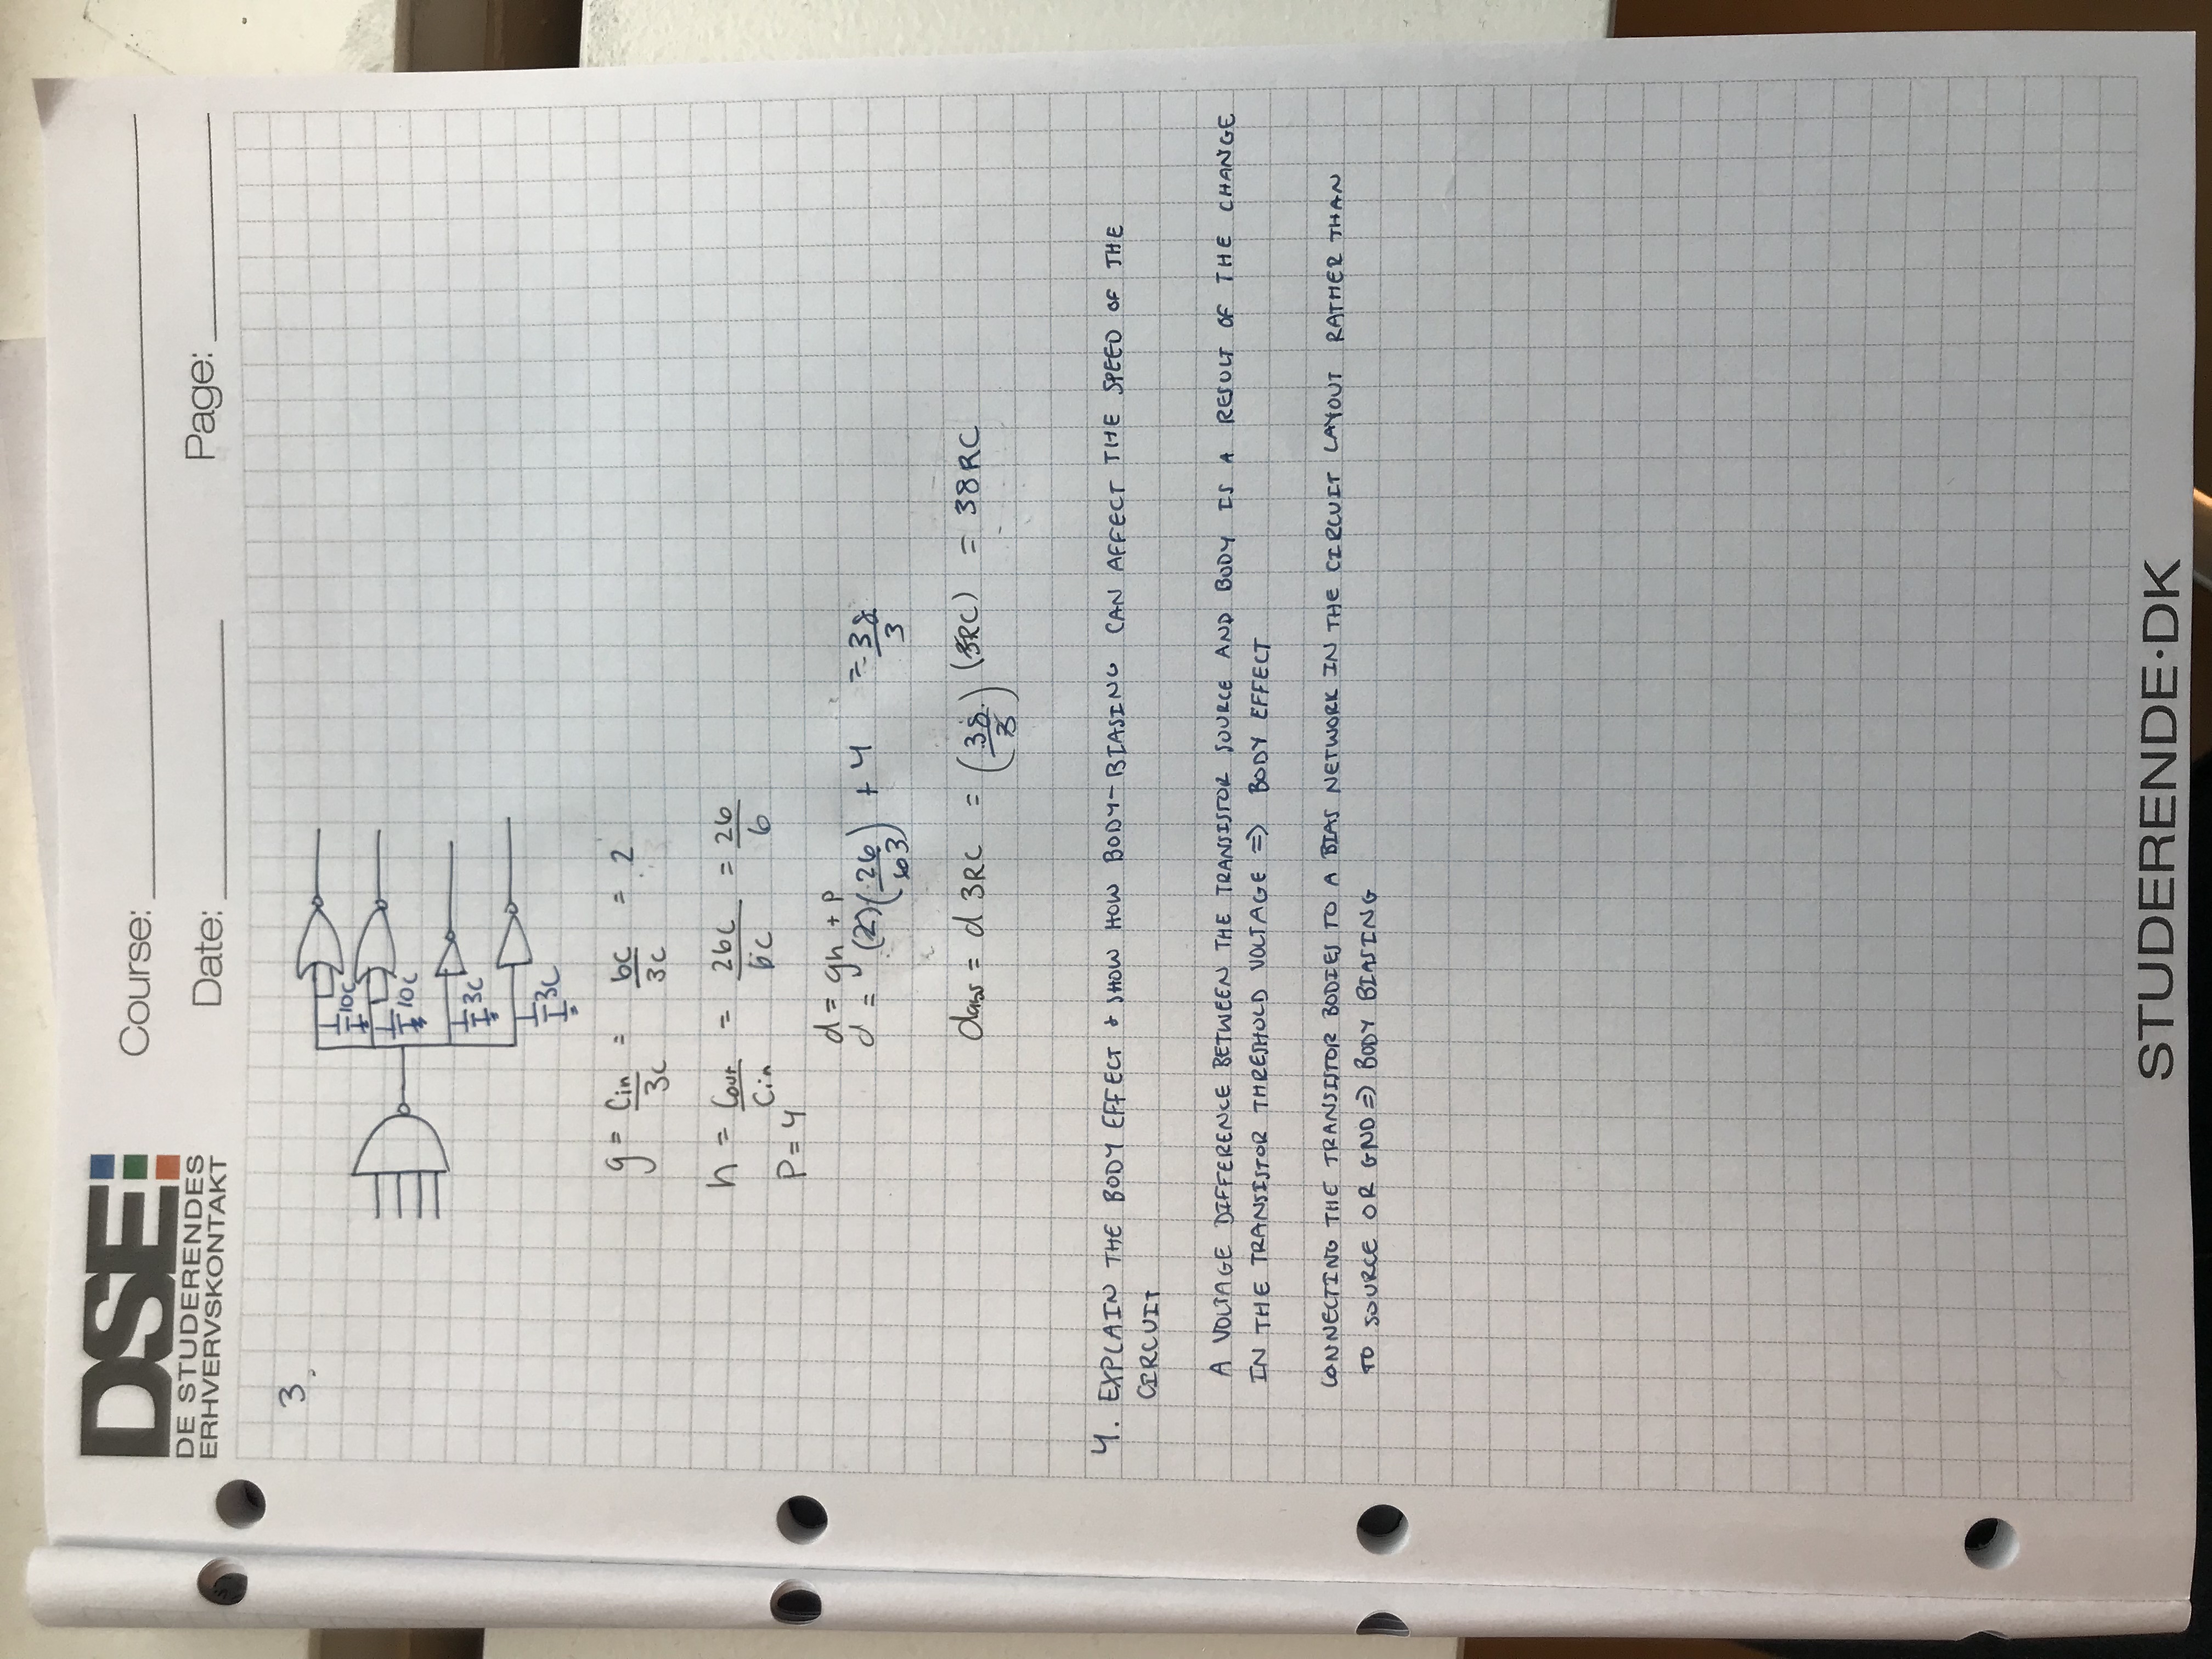 DSE
DE STUDERENDES
ERHVERVSKONTAKT
Course:
Date:
Page:
3.
10C
10C
3C
3C
g = Cin/3C = 6C/3C = 2
h = Cout/Cin = 26C/6C = 26/6
P = 4
d = gh + P
d = (2)(26/63) + 4 = 38/3
dabs = d 3RC = (38/3) (3RC) = 38RC
4. EXPLAIN THE BODY EFFECT & SHOW HOW BODY-BIASING CAN AFFECT THE SPEED OF THE
CIRCUIT
A VOLTAGE DIFFERENCE BETWEEN THE TRANSISTOR SOURCE AND BODY IS A RESULT OF THE CHANGE
IN THE TRANSISTOR THRESHOLD VOLTAGE => BODY EFFECT
CONNECTING THE TRANSISTOR BODIES TO A BIAS NETWORK IN THE CIRCUIT LAYOUT RATHER THAN
TO SOURCE OR GND => BODY BIASING
STUDERENDE·DK